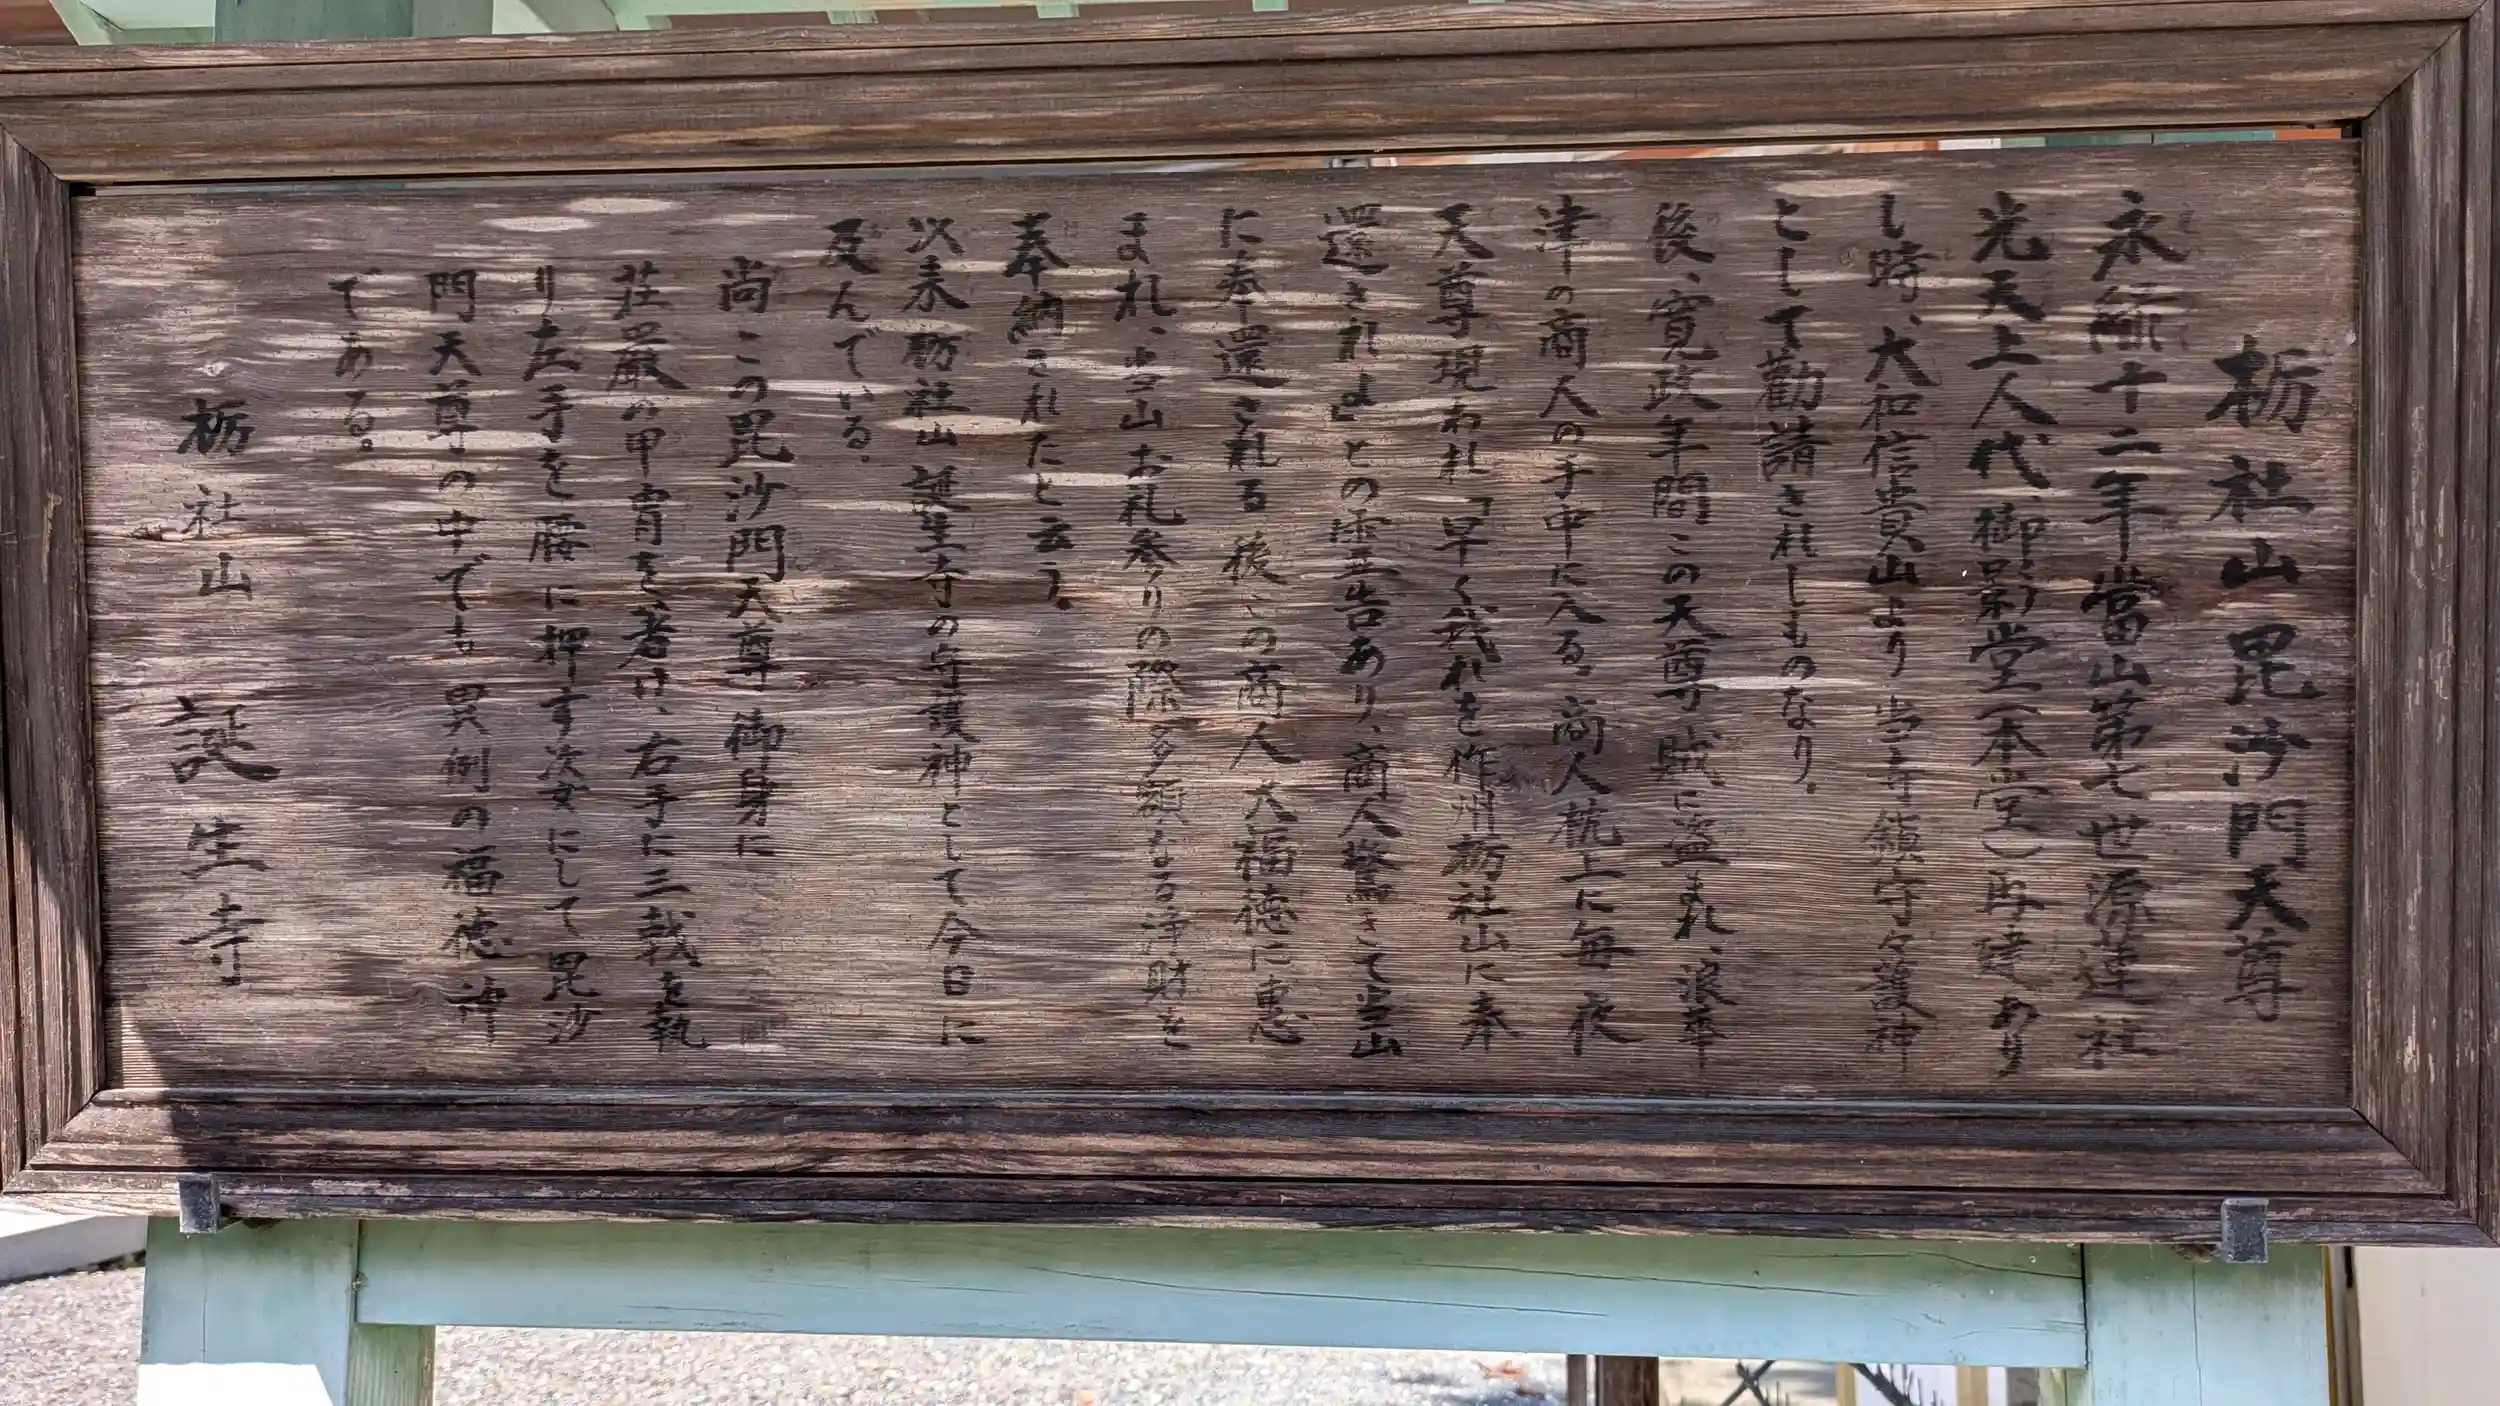 栃社山毘沙門天尊
永禄十二年當山第七世源蓮社
光天上人代、御影堂(本堂)再建あり
し時、大和信貴山より当寺鎮守々護神
として勧請されしものなり。
後、寛政年間この天尊賊に盗まれ、浪華
津の商人の手中に入る。商人枕上に毎夜
天尊現われ「早く我れを作州栃社山に奉
還されよ」との霊告あり、商人驚きて当山
に奉還さ礼る 後この商人大福徳に恵
まれ、当山お礼参りの際多額なる浄財を
奉納されたと云う。
以来栃社山誕生寺の守護神として今日に
及んでいる。
尚この毘沙門天尊御身に
荘厳の甲冑を着け、右手に三戟を執
り左手を腰に押す姿にして毘沙
門天尊の中でも異例の福徳神
である。
栃社山 誕生寺